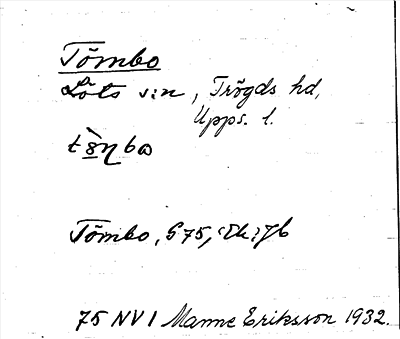 Tömbo
Löts s:n, Trögds hd,
Upps. l.
Tömbo, G 75,
75 NV 1 Manne Eriksson 1932.